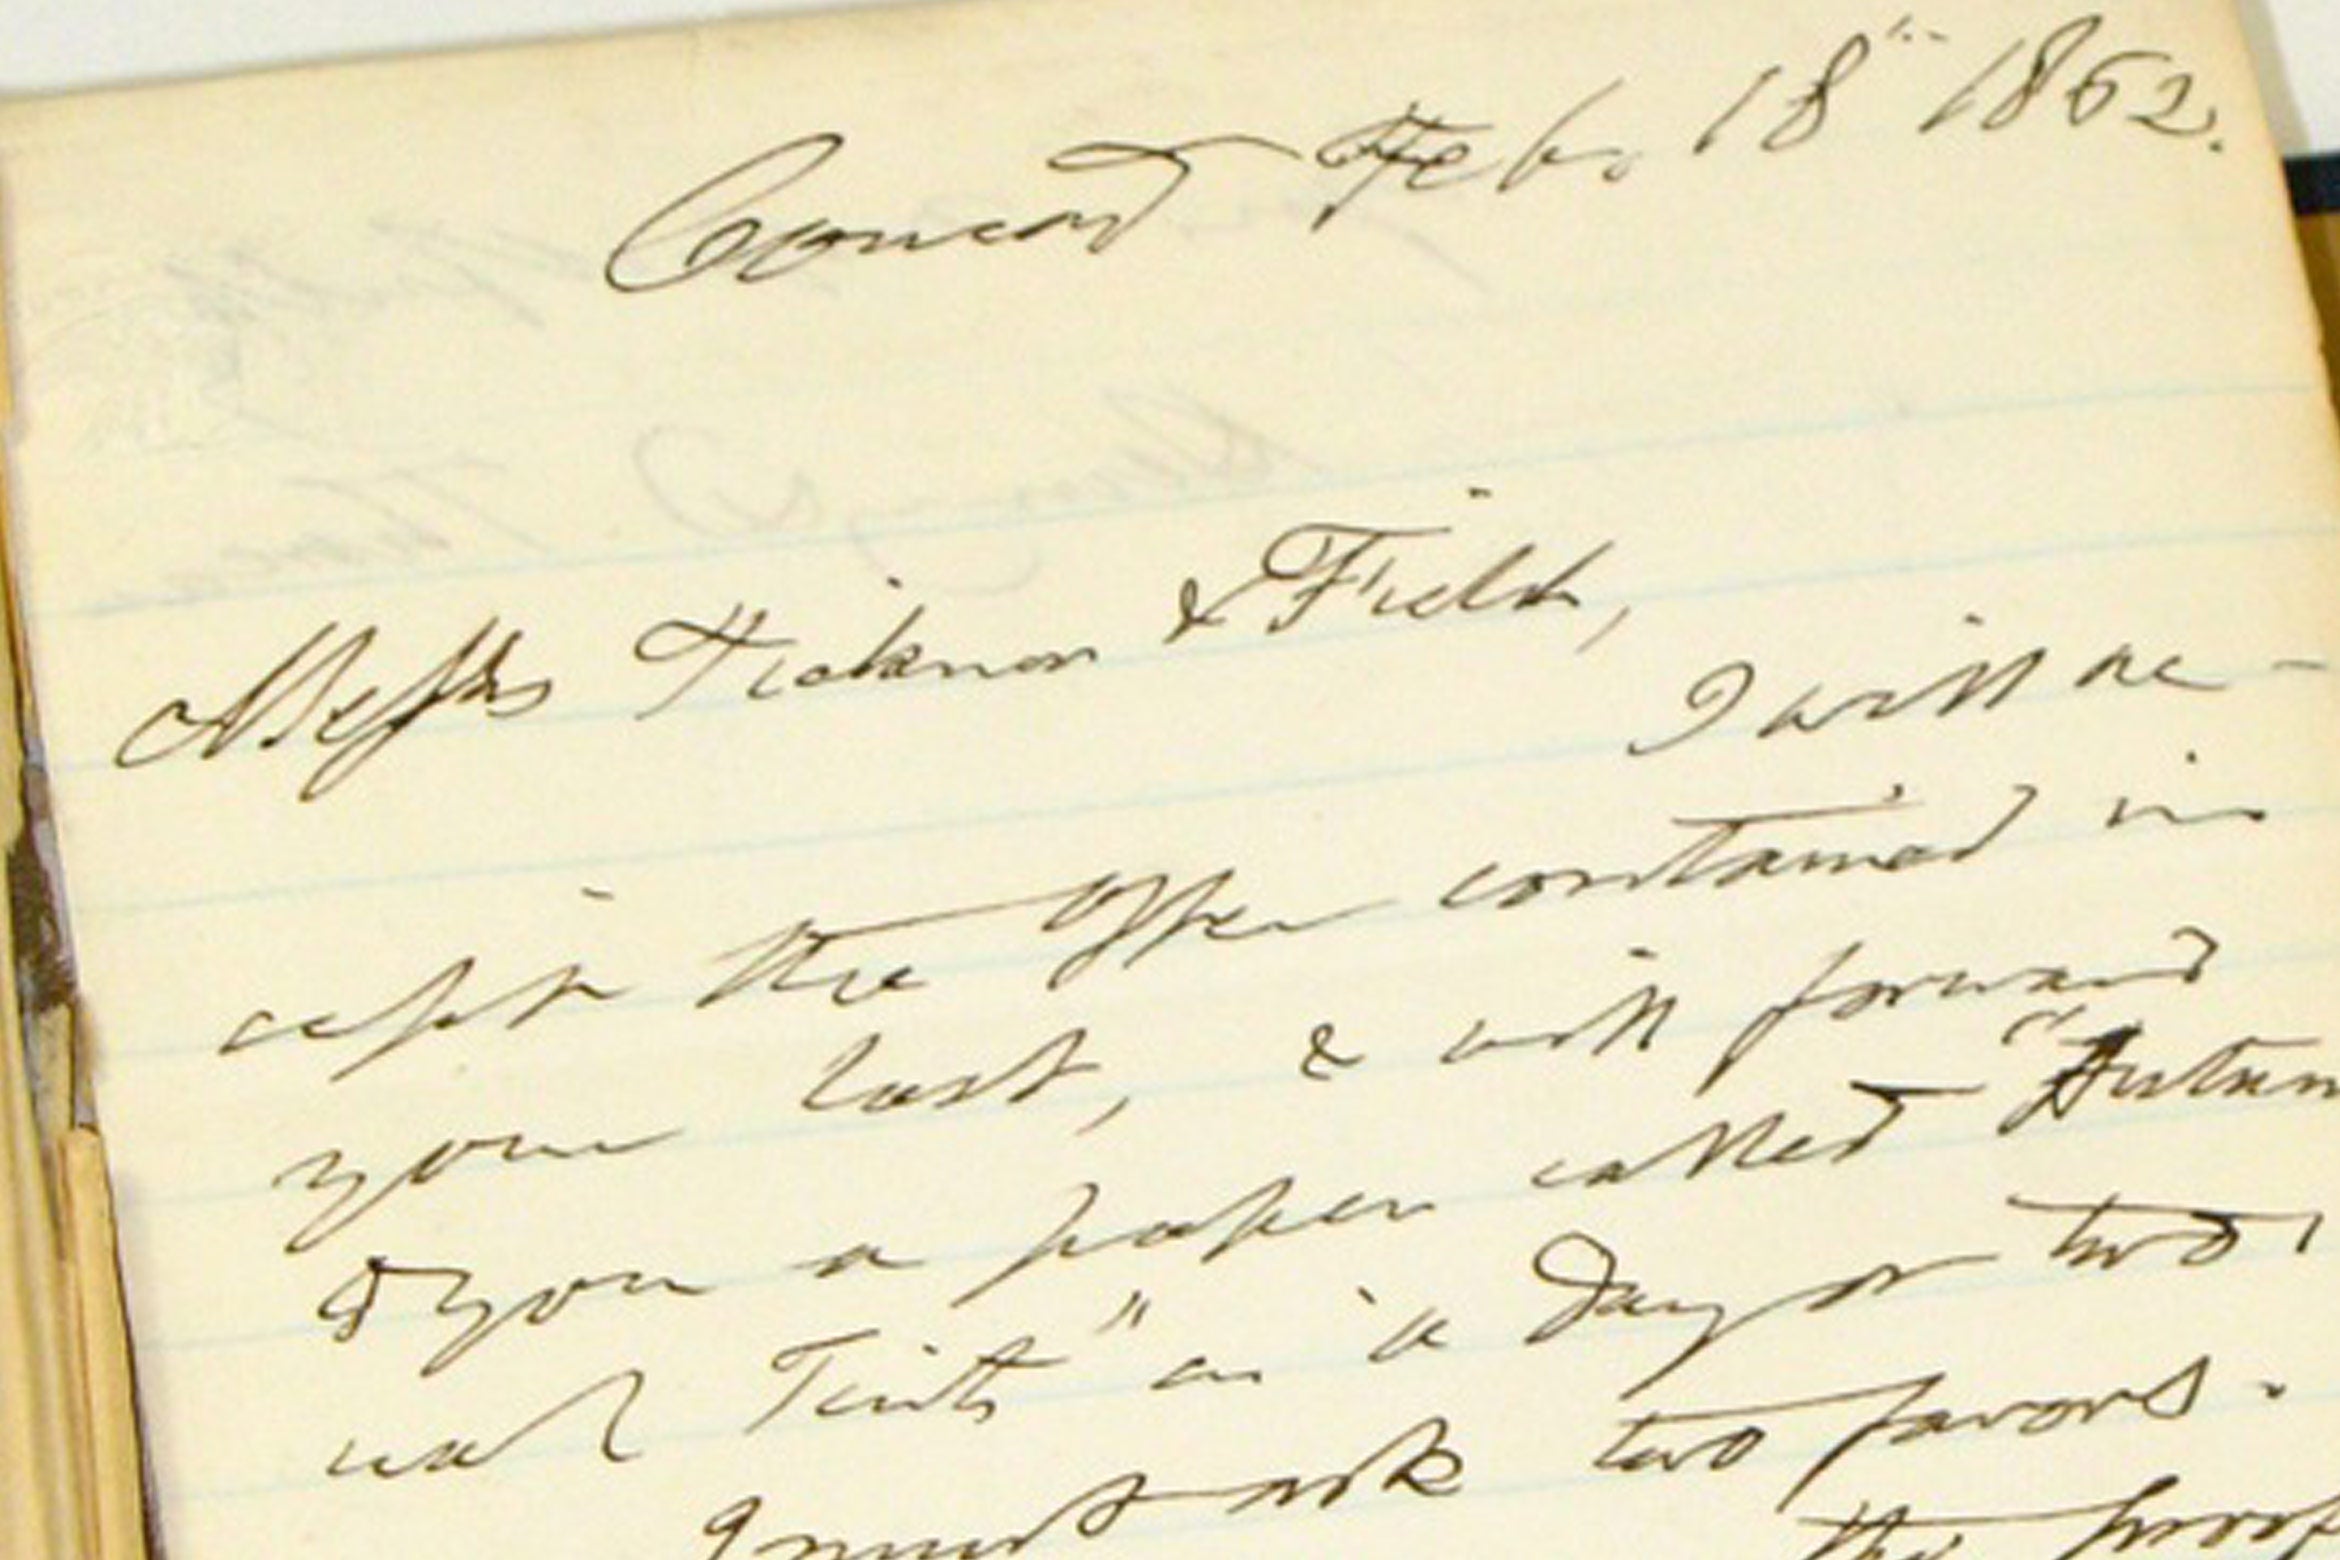 Concord Feb. 18th 1862.
Messrs Ticknor & Fields,
I will ac-
cept the offer contained in
your last, & will forward
to you a paper called "Autum
nal Tints" in a day or two.
I must ask two favors.
the proof